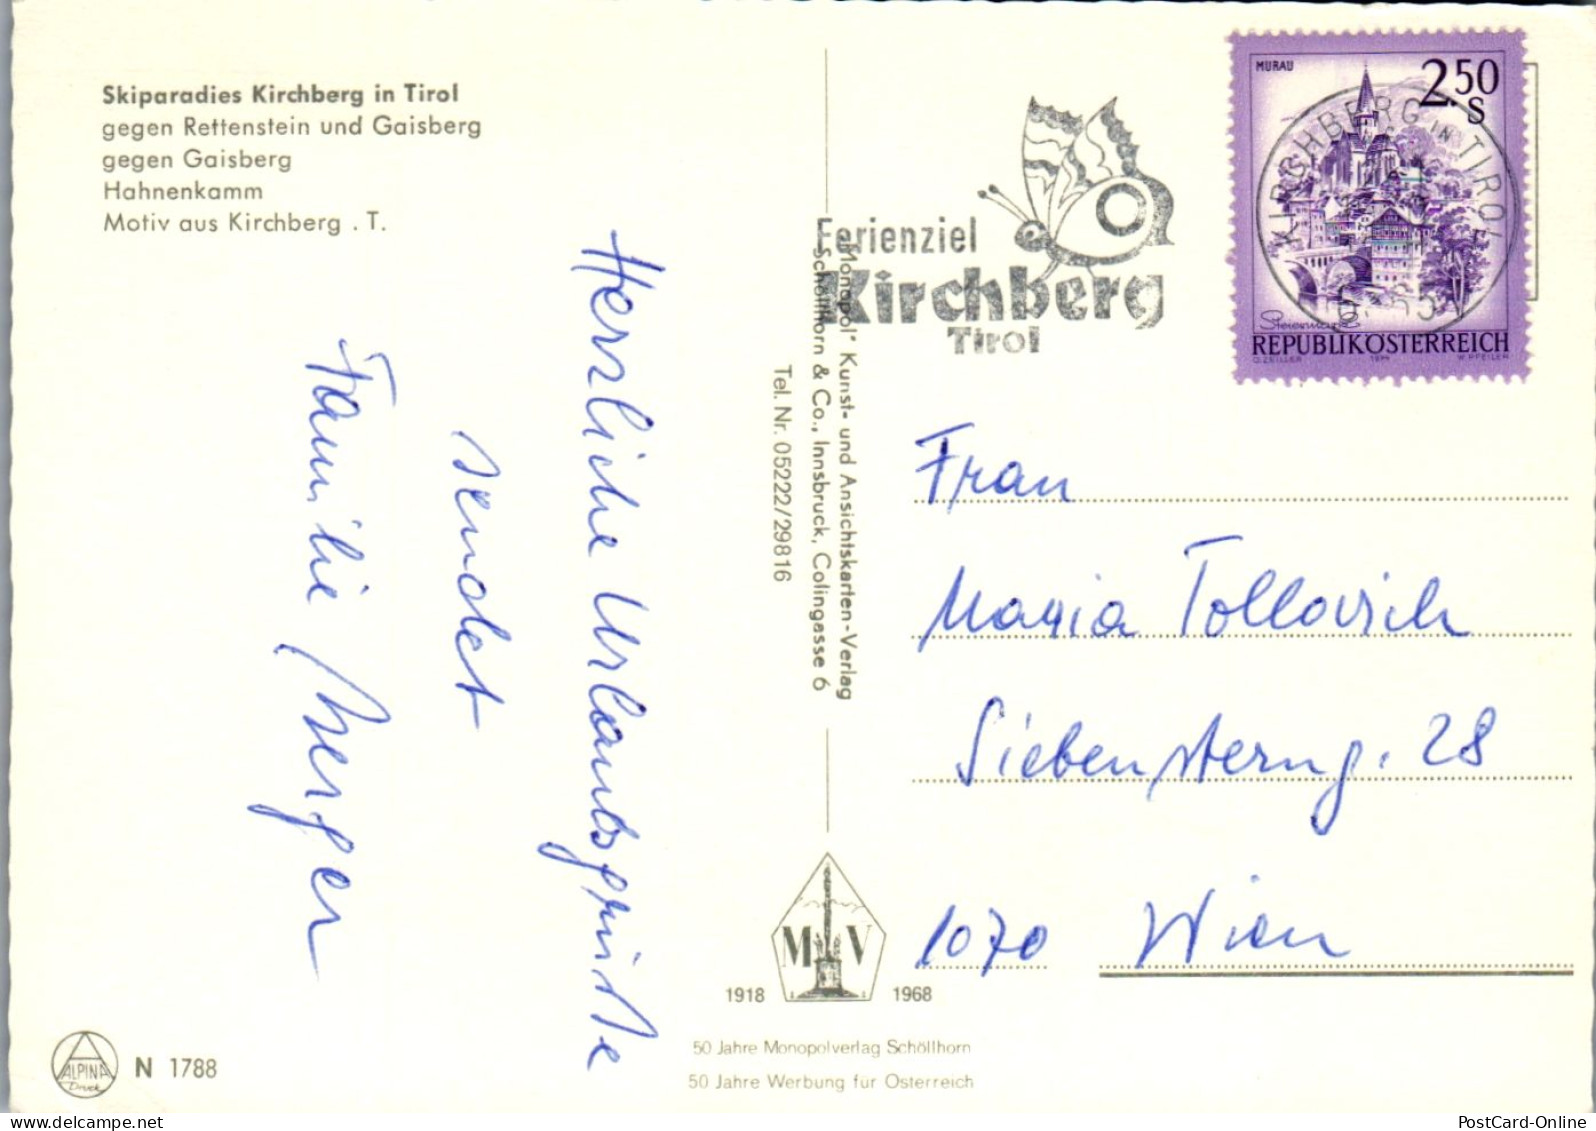 Skiparadies Kirchberg in Tirol
gegen Rettenstein und Gaisberg
gegen Gaisberg
Hahnenkamm
Motiv aus Kirchberg . T.
Herzliche Urlaubsgrüße
sendet
Familie Berger
„Monopol" Kunst- und Ansichtskarten-Verlag
Schöllhorn & Co., Innsbruck, Colingasse 6
Tel. Nr. 05222/29816
Ferienziel
Kirchberg
Tirol
KIRCHBERG IN TIROL
MURAU
2.50
S
Steiermark
REPUBLIK ÖSTERREICH
O. ZEILLER 1974 W. PFEILER
Frau
Maria Tollovich
Siebensterng. 28
1070 Wien
M V
1918 1968
50 Jahre Monopolverlag Schöllhorn
50 Jahre Werbung für Österreich
ALPINA
Druck
N 1788
PostCard-Online